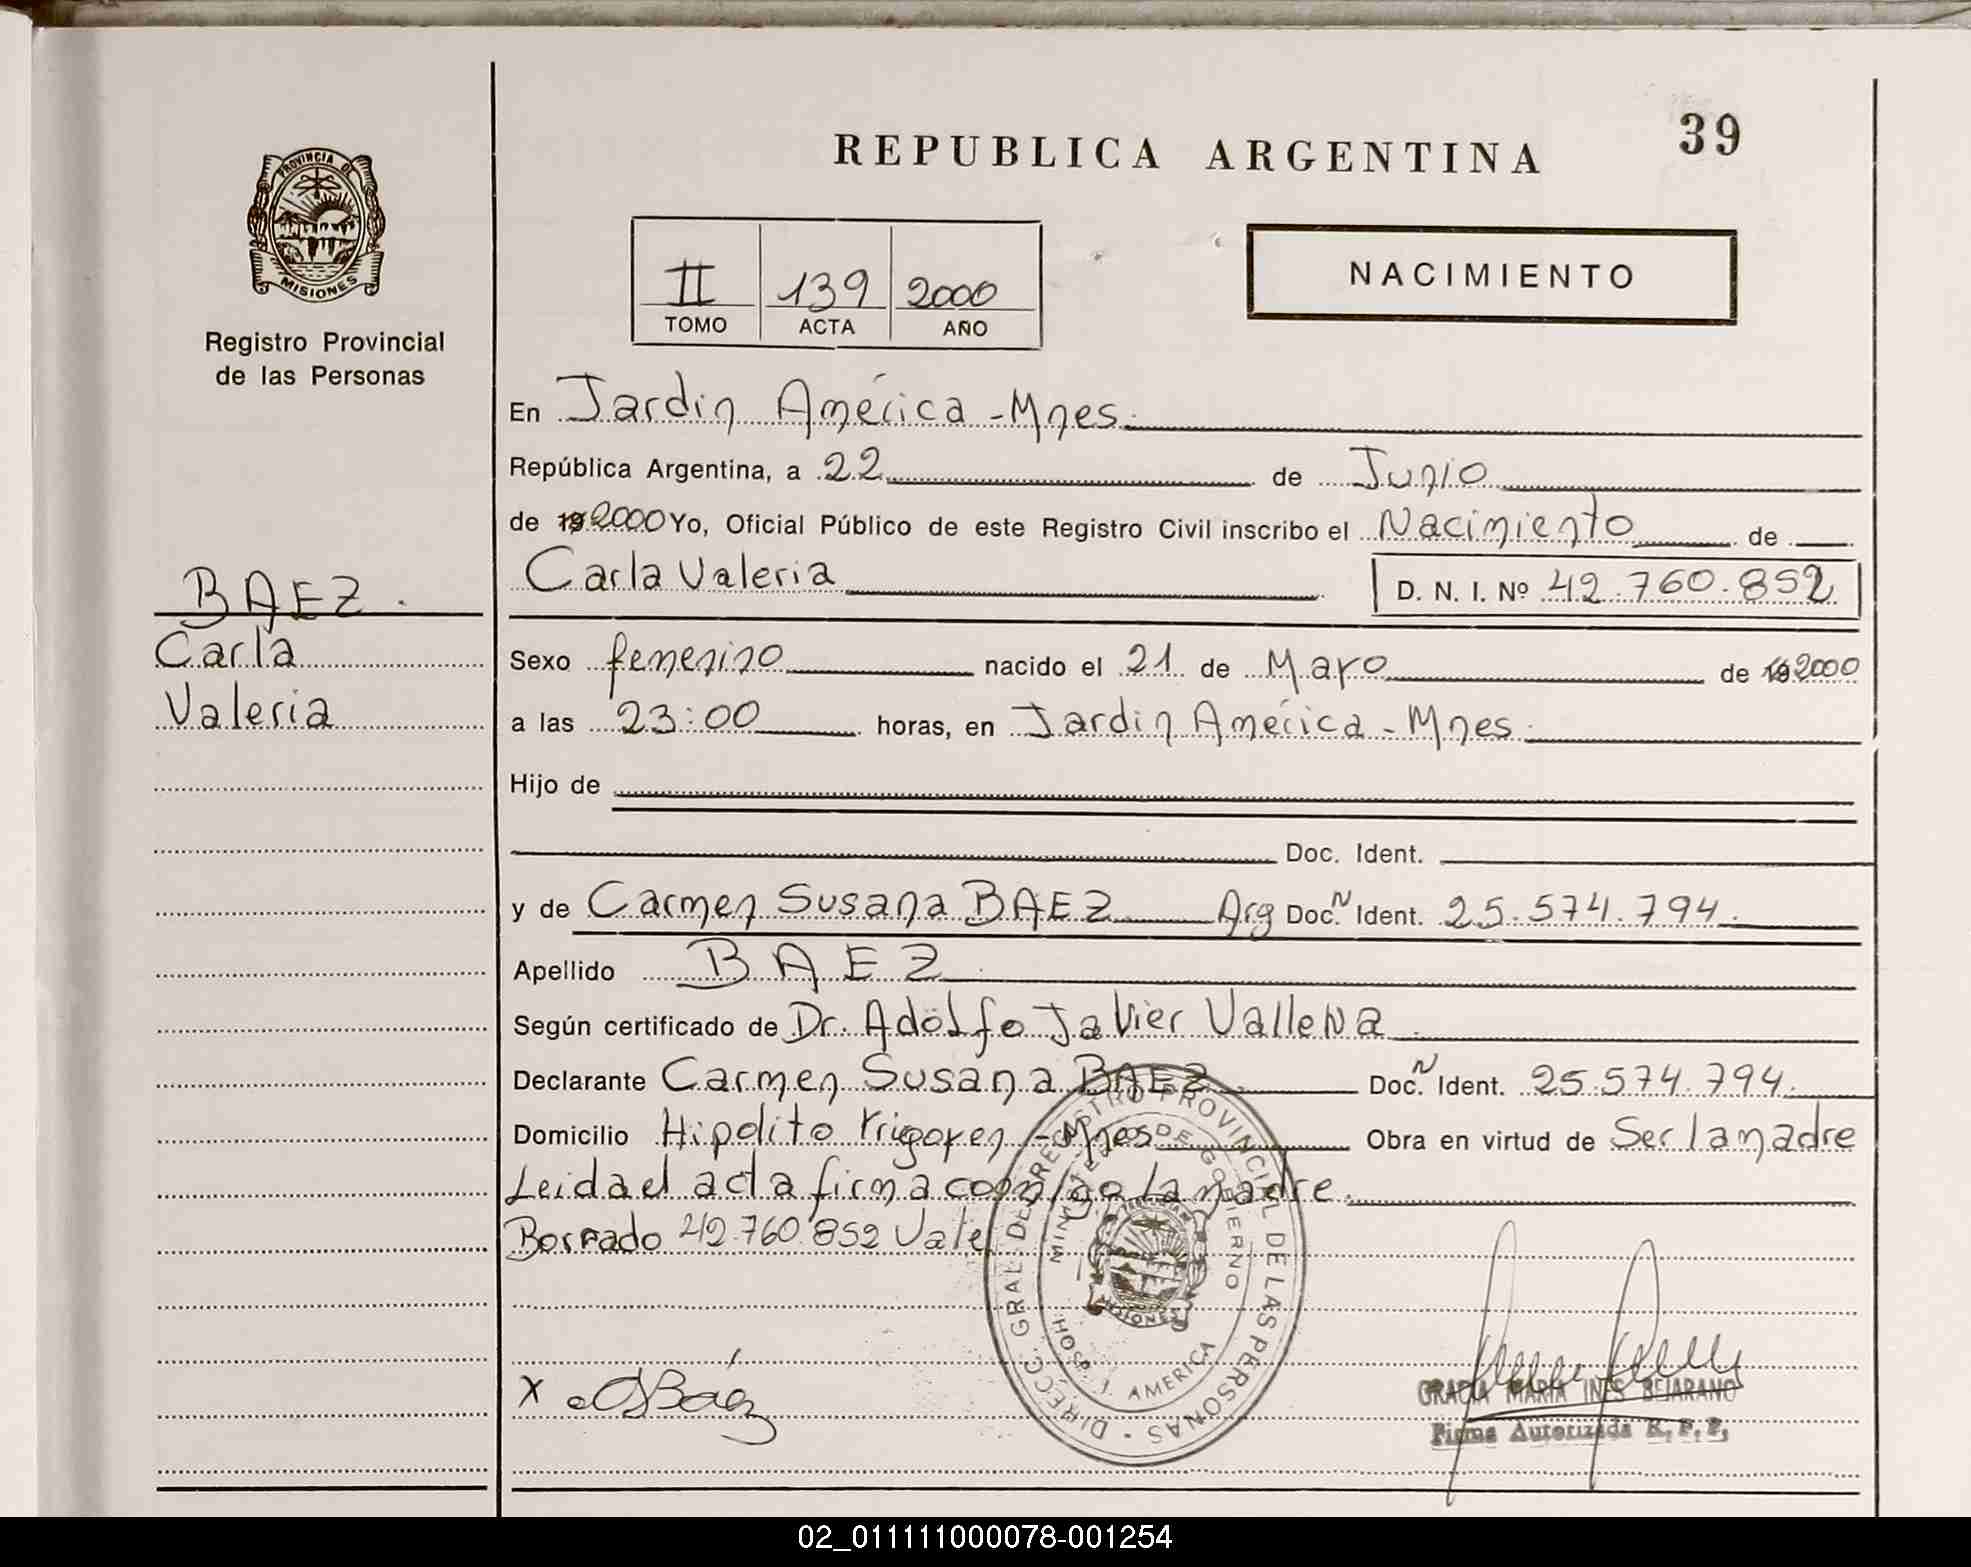 REPUBLICA ARGENTINA
39
PROVINCIA DE
MISIONES
Registro Provincial
de las Personas
II 139 2000
TOMO ACTA AÑO
NACIMIENTO
En Jardin América - Mnes.
República Argentina, a 22 de Junio
de 19 2000 Yo, Oficial Público de este Registro Civil inscribo el Nacimiento de
Carla Valeria D. N. I. Nº 42.760.852
BAEZ.
Carla
Valeria
Sexo femenino nacido el 21 de Mayo de 19 2000
a las 23:00 horas, en Jardin América - Mnes.
Hijo de
Doc. Ident.
y de Carmen Susana BAEZ Arg Doc. N Ident. 25.574.794.
Apellido BAEZ
Según certificado de Dr. Adolfo Javier
Declarante Carmen Susana BAEZ Doc. N Ident. 25.574.794.
Domicilio Hipolito Yrigoyen - Mnes Obra en virtud de Ser la madre
Leida el acta firma conmigo la madre.
Borrado 42.760.852 Vale
DIRECC. GRAL. DE REGISTRO PROVINCIAL DE LAS PERSONAS
MINISTERIO DE GOBIERNO
MISIONES
HOSP. J. AMERICA
X Báez
GRACIA MARIA INES BEJARANO
Firma Autorizada R. P. P.
02_011111000078-001254